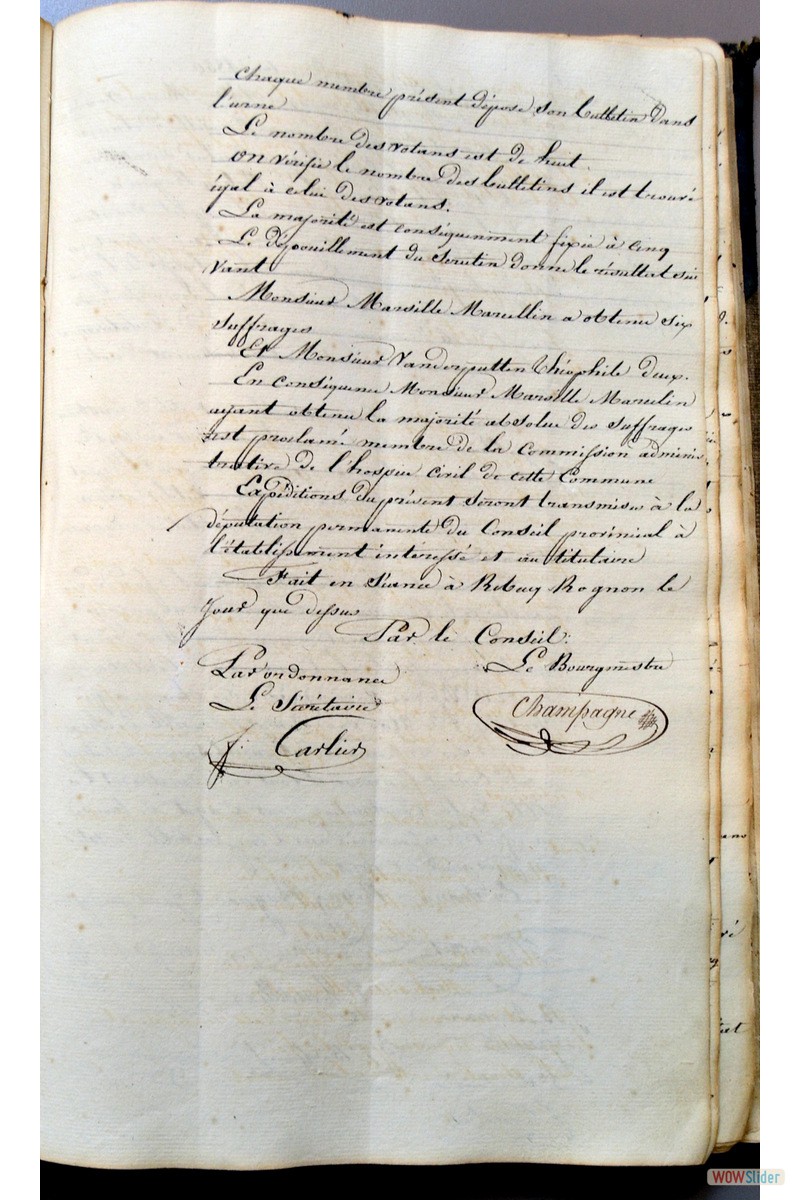 chaque membre présent dépose son bulletin dans
l'urne
Le nombre des votans est de huit.
on vérifie le nombre des bulletins il est trouvé
égal à celui des votans.
La majorité est conséquemment fixée à cinq
Le dépouillement du scrutin donne le résultat sui
vant
Monsieur Marsille Marcellin a obtenu six
suffrages
Et Monsieur Vanderputten Théophile deux.
En conséquence Monsieur Marsille Marcelin
ayant obtenu la majorité absolue des suffrages
est proclamé membre de la Commission adminis
trative de l'hospice civil de cette Commune
Expéditions du présent seront transmises à la
députation permanente du Conseil provincial à
l'établissement intéressé et au titulaire
Fait en séance à Rebecq Rognon le
Jour que dessus
Par le Conseil:
Par ordonnance
Le Bourgmestre
Le Secrétaire
Champagne
J. Carlier
WOWSlider